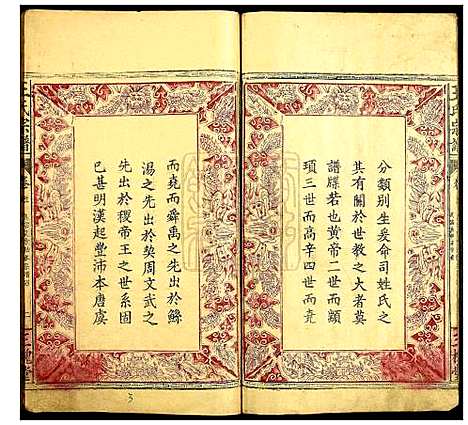 分類別生爰命司姓氏之
其有關於世教之大者莫
譜牒若也黃帝二世而顓
頊三世而高辛四世而堯
而堯而舜禹之先出於鯀
湯之先出於契周文武之
先出於稷帝王之世系固
已甚明漢起豐沛本唐虞
王氏宗譜
王氏宗譜
3